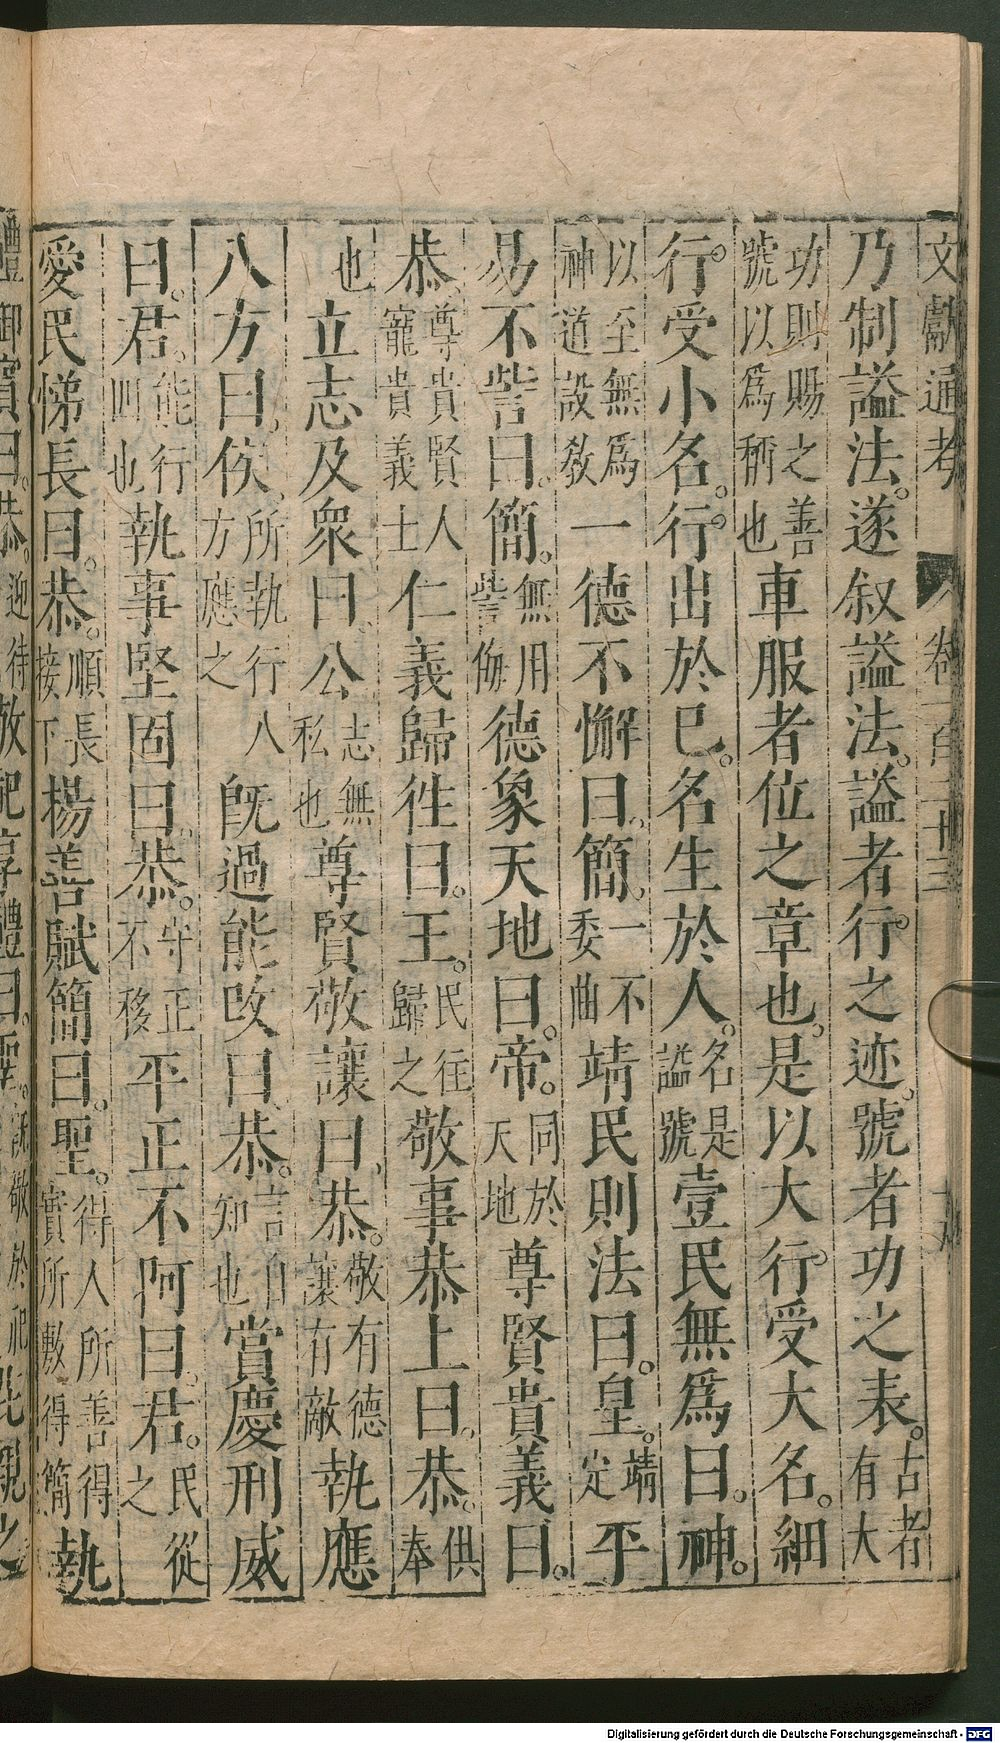 文獻通考 卷一百二十三
乃制謚法。遂叙謚法。謚者行之迹。號者功之表。古者有大
功則賜之善號以爲稱也車服者位之章也。是以大行受大名。細
行。受小名。行出於已。名生於人。名是謚號壹民無爲曰。神。
以至無爲神道設敎一德不懈曰。簡。一不委曲靖民則法曰。皇。靖定平
易不訾曰。簡。無用訾侮德象天地曰。帝。同於天地尊賢貴義曰。
恭。尊貴賢人寵貴義士仁義歸徃曰。王。民往歸之敬事恭上曰。恭。供奉
也立志及衆曰。公志無私也尊賢敬讓曰。恭。敬有德讓有敵執應
八方曰。侯。所執行八方應之旣過能改曰。恭。言自知也賞慶刑威
曰。君。能行四也執事堅固曰。恭。守正不移平正不阿曰。君。民從之
愛民悌長曰。恭。順長接下楊善賦簡曰。聖。得人所善得實所敷得簡執
禮御賓曰。恭。迎待敬祀享禮曰。聖。旣敬於祀此親之
Digitalisierung gefördert durch die Deutsche Forschungsgemeinschaft - DFG